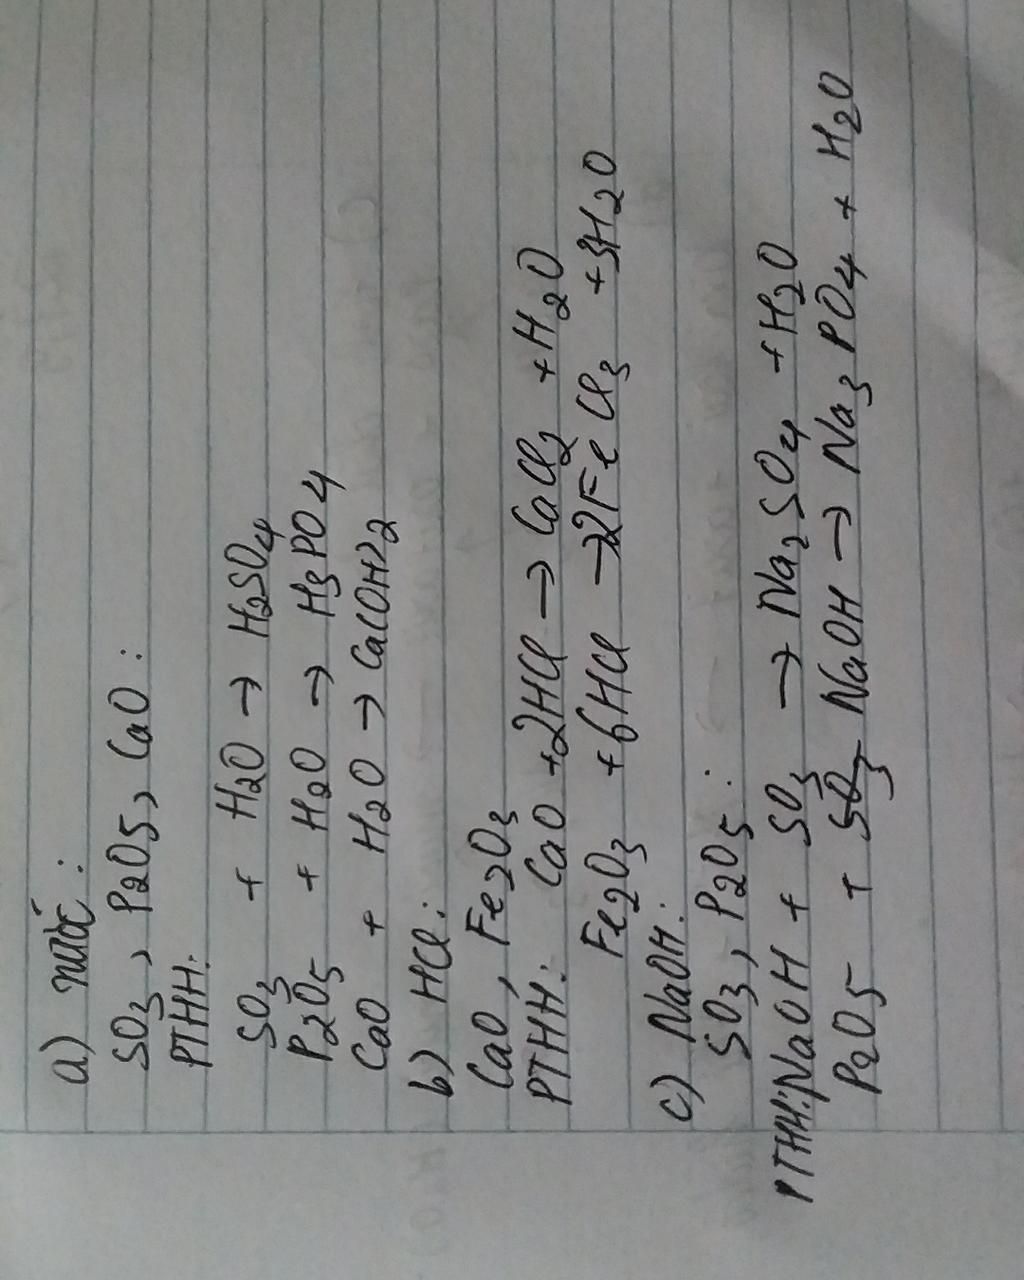 a) nước:
SO3, P2O5, CaO:
PTHH:
SO3 + H2O → H2SO4
P2O5 + H2O → H3PO4
CaO + H2O → Ca(OH)2
b) HCl:
CaO, Fe2O3
PTHH: CaO +2HCl → CaCl2 +H2O
Fe2O3 +6HCl →2FeCl3 +3H2O
c) NaOH:
SO3, P2O5:
PTHH:NaOH + SO3 → Na2SO4 +H2O
P2O5 + NaOH → Na3PO4 + H2O